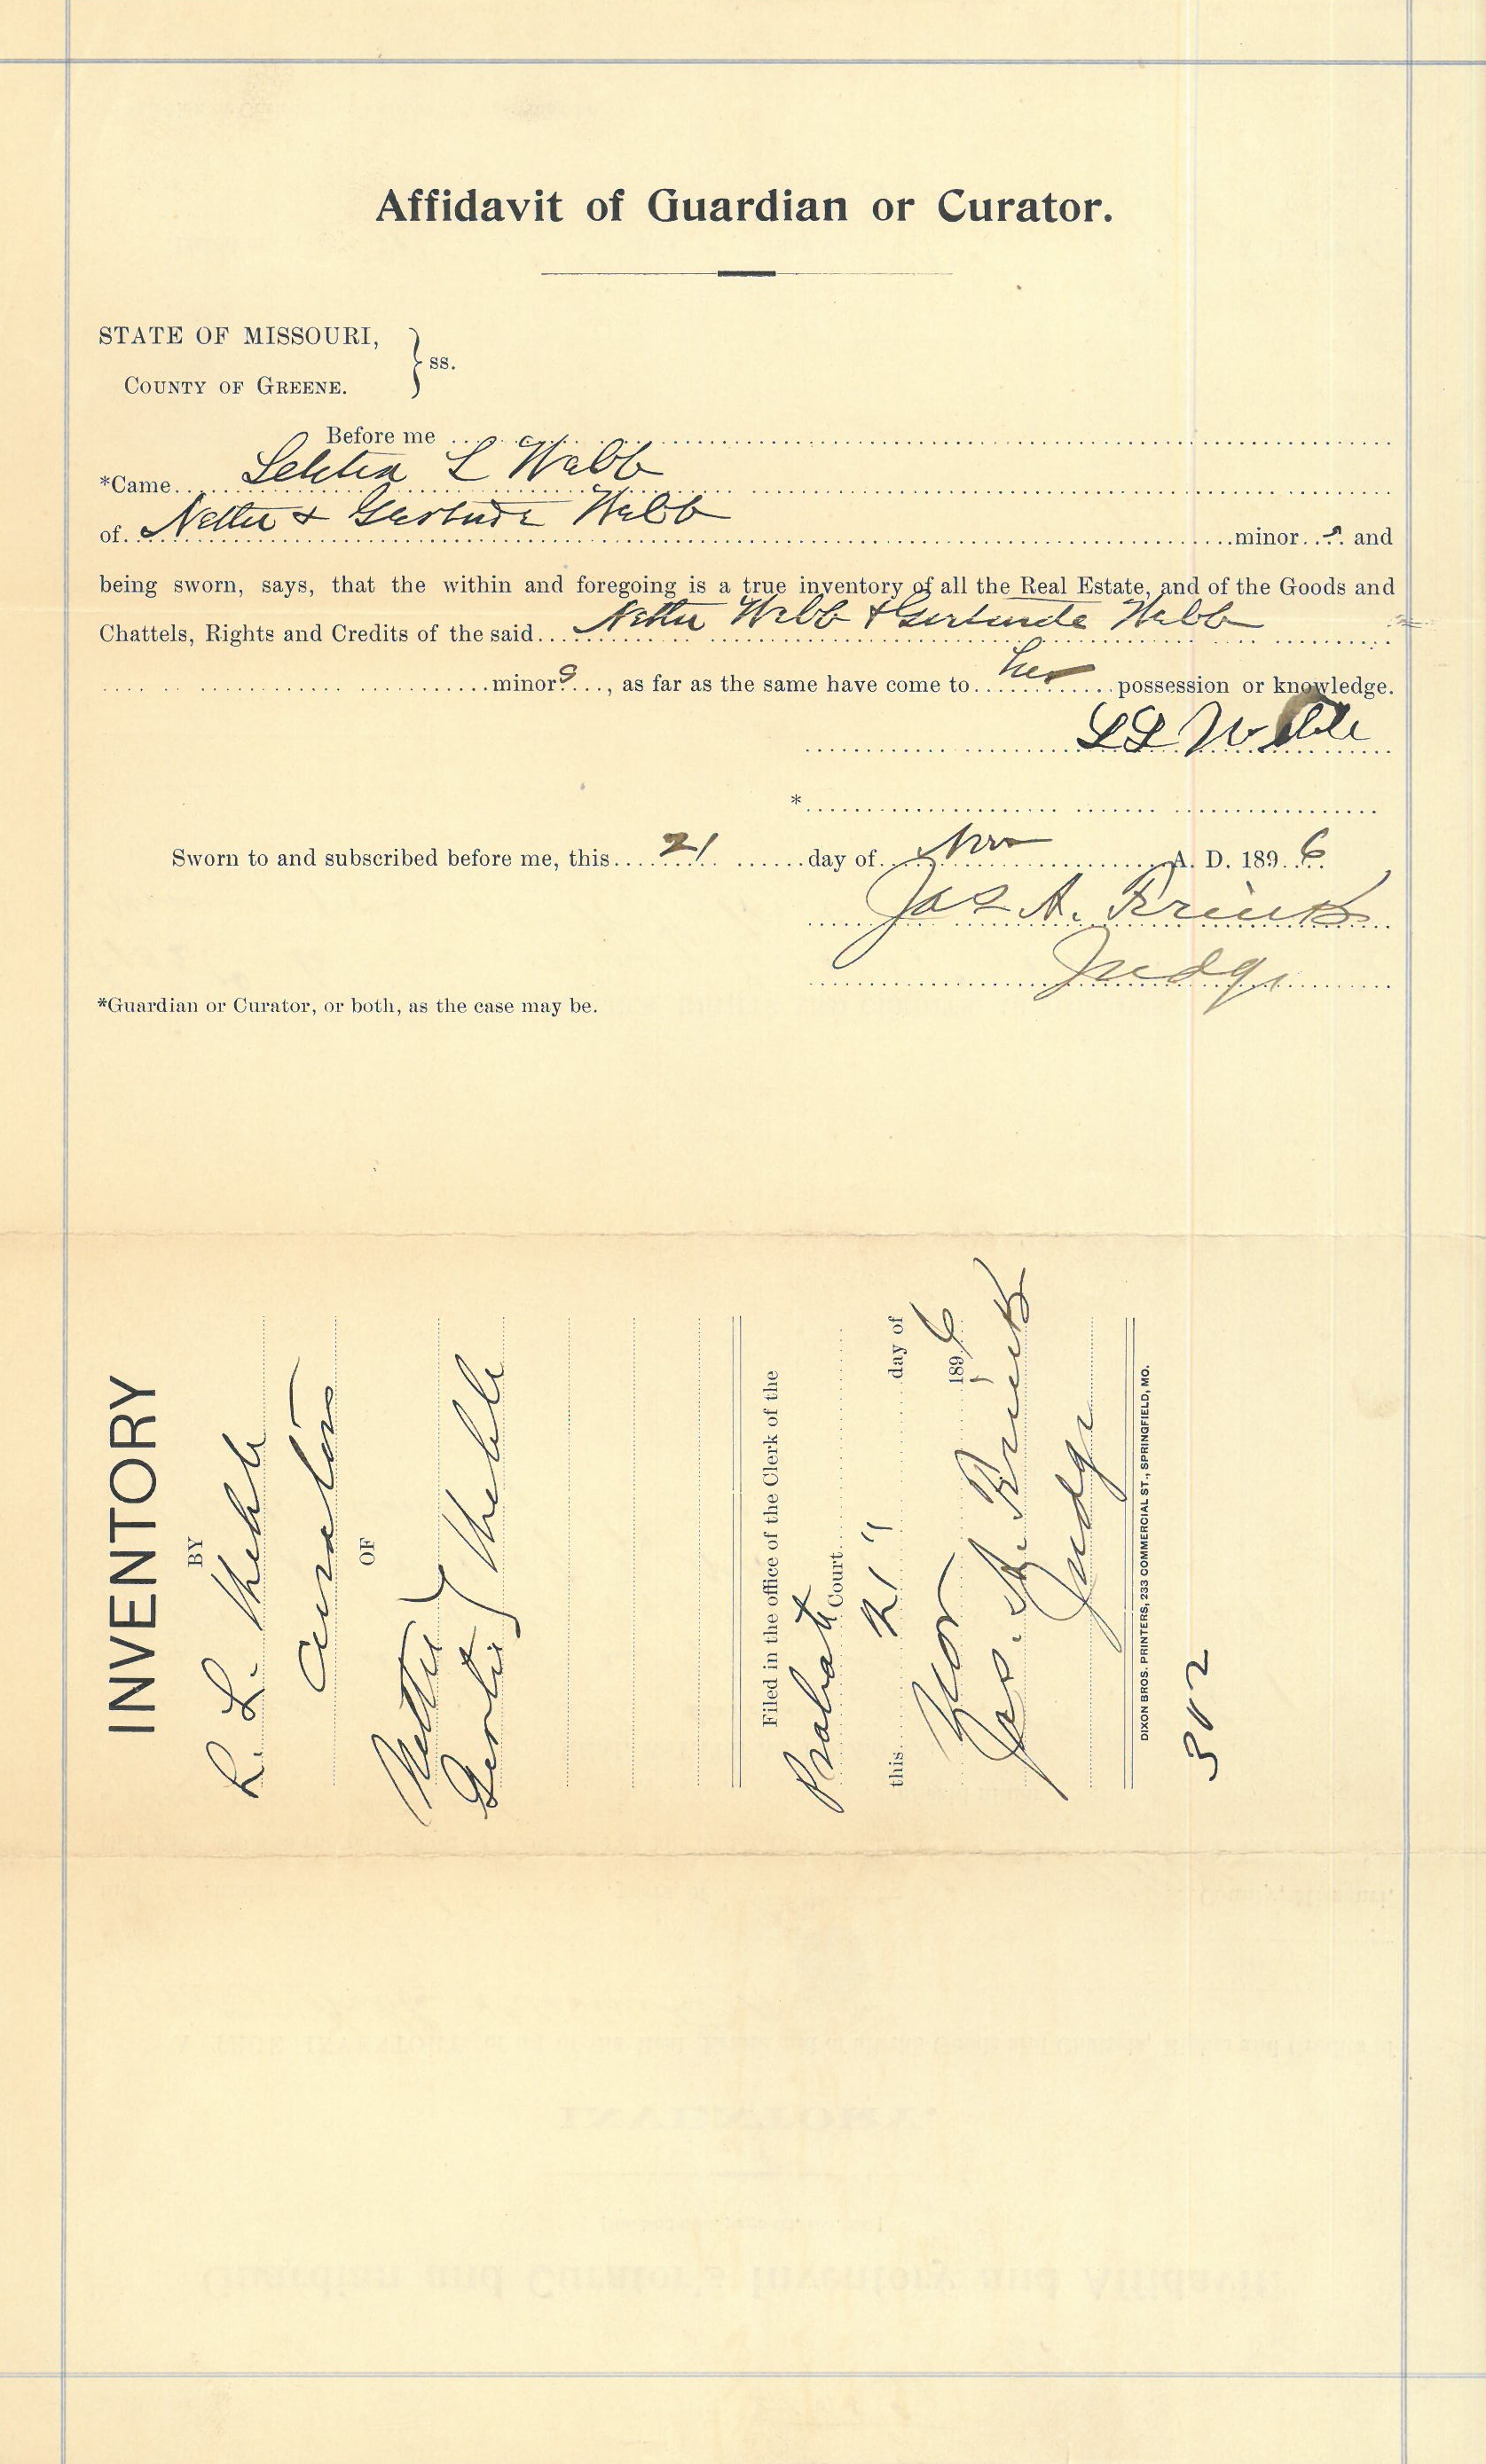 Affidavit of Guardian or Curator.
STATE OF MISSOURI,
COUNTY OF GREENE.
} ss.
Before me
*Came L Webb
of Nettie & Gertrude Webb minor s and
being sworn, says, that the within and foregoing is a true inventory of all the Real Estate, and of the Goods and
Chattels, Rights and Credits of the said Nettie Webb & Gertrude Webb
minor s, as far as the same have come to her possession or knowledge.
L L Webb
*
Sworn to and subscribed before me, this 21 day of Nov A. D. 1896
Jas A.
Judge
*Guardian or Curator, or both, as the case may be.
INVENTORY
BY
L. L. Webb
Curator
OF
Nettie
Gertie } Webb
Filed in the office of the Clerk of the
Probate Court
this 21" day of
Nov 1896
Jas. A.
Judge
DIXON BROS. PRINTERS, 233 COMMERCIAL ST., SPRINGFIELD, MO.
302